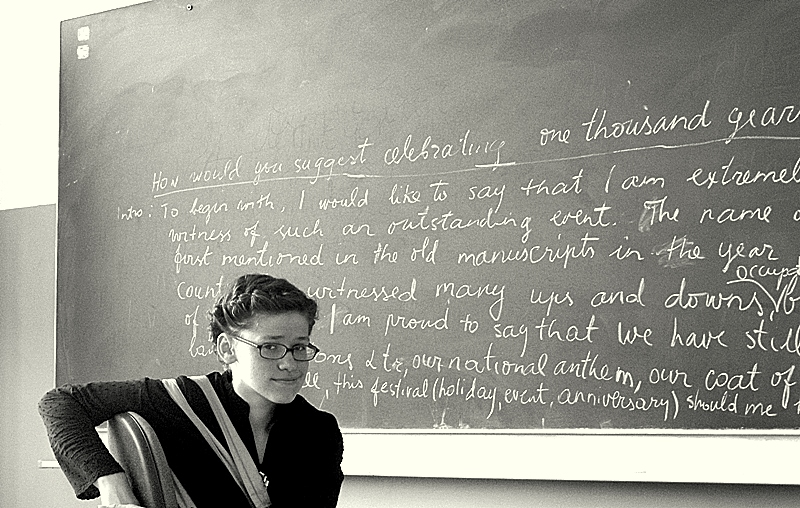 How would you suggest celebrating one thousand years
Intro: To begin with, I would like to say that I am extremel
witness of such an outstanding event. The name o
first mentioned in the old manuscripts in the year
occup
count witnessed many ups and downs,
of I am proud to say that we have still
ons &tr, our national anthem, our coat of
this festival (holiday, event, anniversary) should me